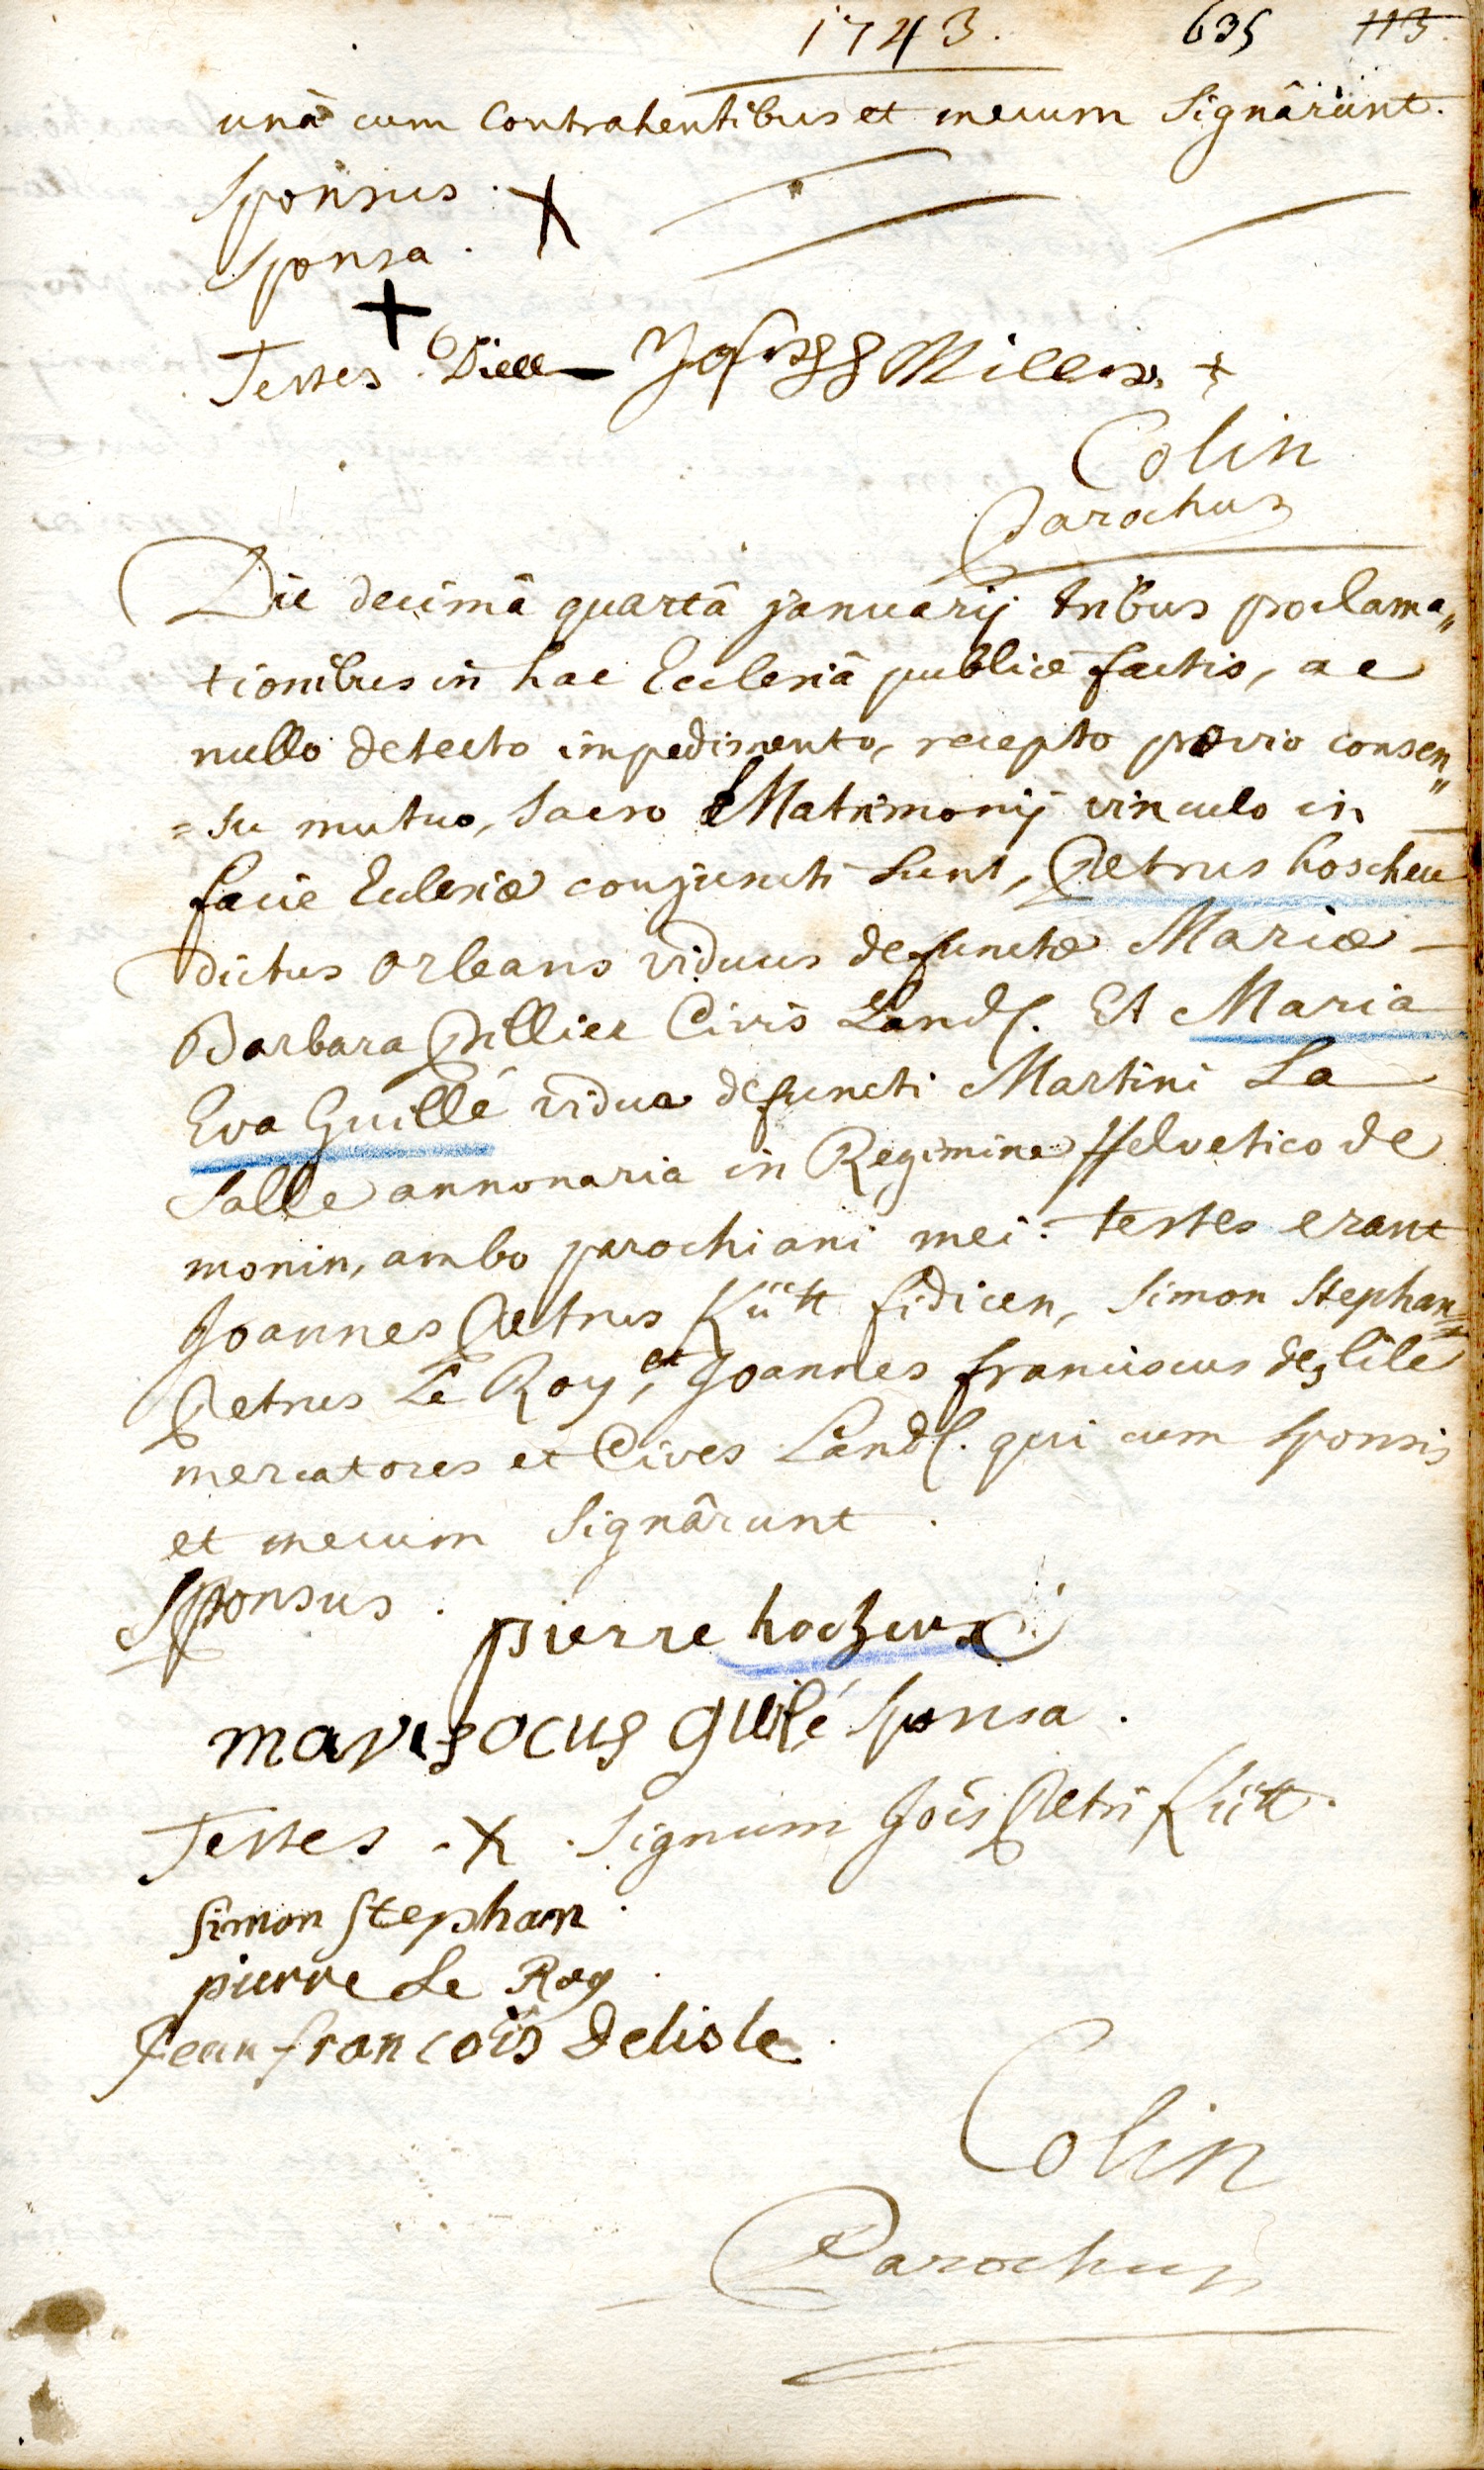 1743. 635 113.
unâ cum Contrahentibus et mecum Signârunt.
Sponsus. X
Sponsa.
+
Testes. Diell Miller +
Colin
Parochus
Die decimâ quartâ januarij tribus proclama„
tionibus in hac Ecclesiâ publicè factis, ac
nullo detecto impedimento, recepto prævio consen„
=su mutuo, Sacro Matrimonij vinculo in
facie Ecclesiæ conjuncti Sunt, Petrus hoscheu
dictus orleans viduus defunctæ Mariæ
Barbara Pillier Civis Land. Et Maria
Eva Guillé vidua defuncti Martini La
Salle annonaria in Regimine Helvetico de
monin, ambo parochiani mei. testes erant
Joannes Petrus Kütt fidicen, Simon Stephan,
Petrus Le Roy, et Joannes franciscus deslile
mercatores et Cives Land. qui cum Sponsis
et mecum Signârunt.
Sponsus. pierre hocheux
Guilé Sponsa.
Testes. X. Signum Jois Petri Kütt.
Simon Stephan.
pierre Le Roy.
Jean francois Delisle.
Colin
Parochus